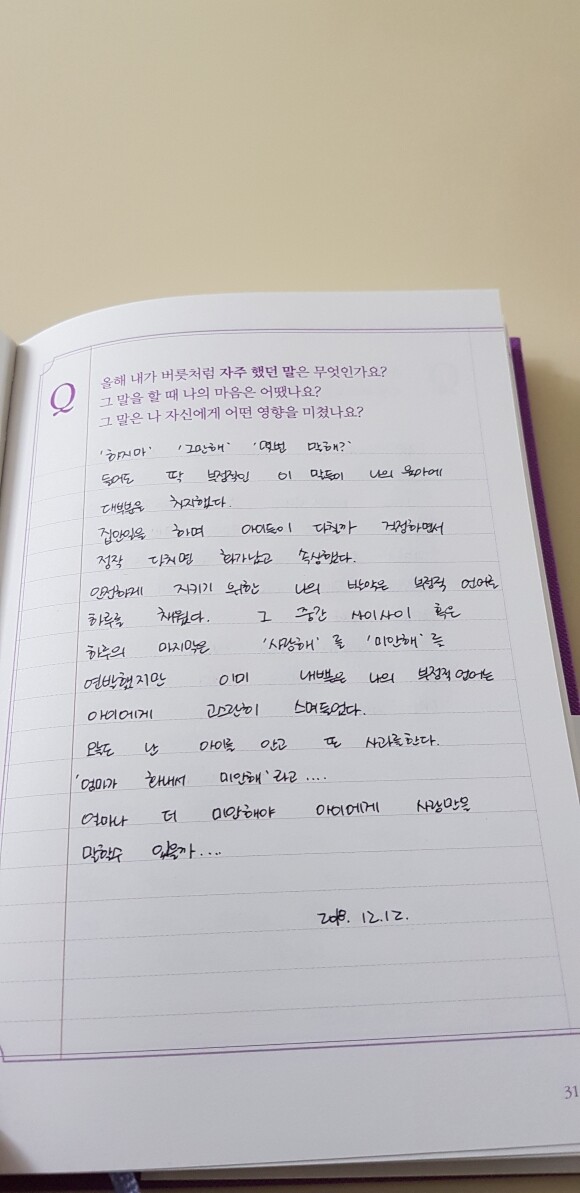 Q
올해 내가 버릇처럼 자주 했던 말은 무엇인가요?
그 말을 할 때 나의 마음은 어땠나요?
그 말은 나 자신에게 어떤 영향을 미쳤나요?
'하지마' '그만해' '몇번 말해?'
들어도 딱 부정적인 이 말들이 나의 육아에
대부분을 차지했다.
집안일을 하며 아이들이 다칠까 걱정하면서
정작 다치면 화가나고 속상했다.
안전하게 지키기 위한 나의 반악은 부정적 언어로
하루를 채웠다. 그 중간 사이사이 혹은
하루의 마지막은 '사랑해'를 '미안해'를
연발했지만 이미 내뱉은 나의 부정적 언어는
아이에게 고스란히 스며들었다.
오늘도 난 아이를 안고 또 사과를한다.
'엄마가 화내서 미안해'라고....
얼마나 더 미안해야 아이에게 사랑만을
말할수 있을까....
2018. 12.12.
31